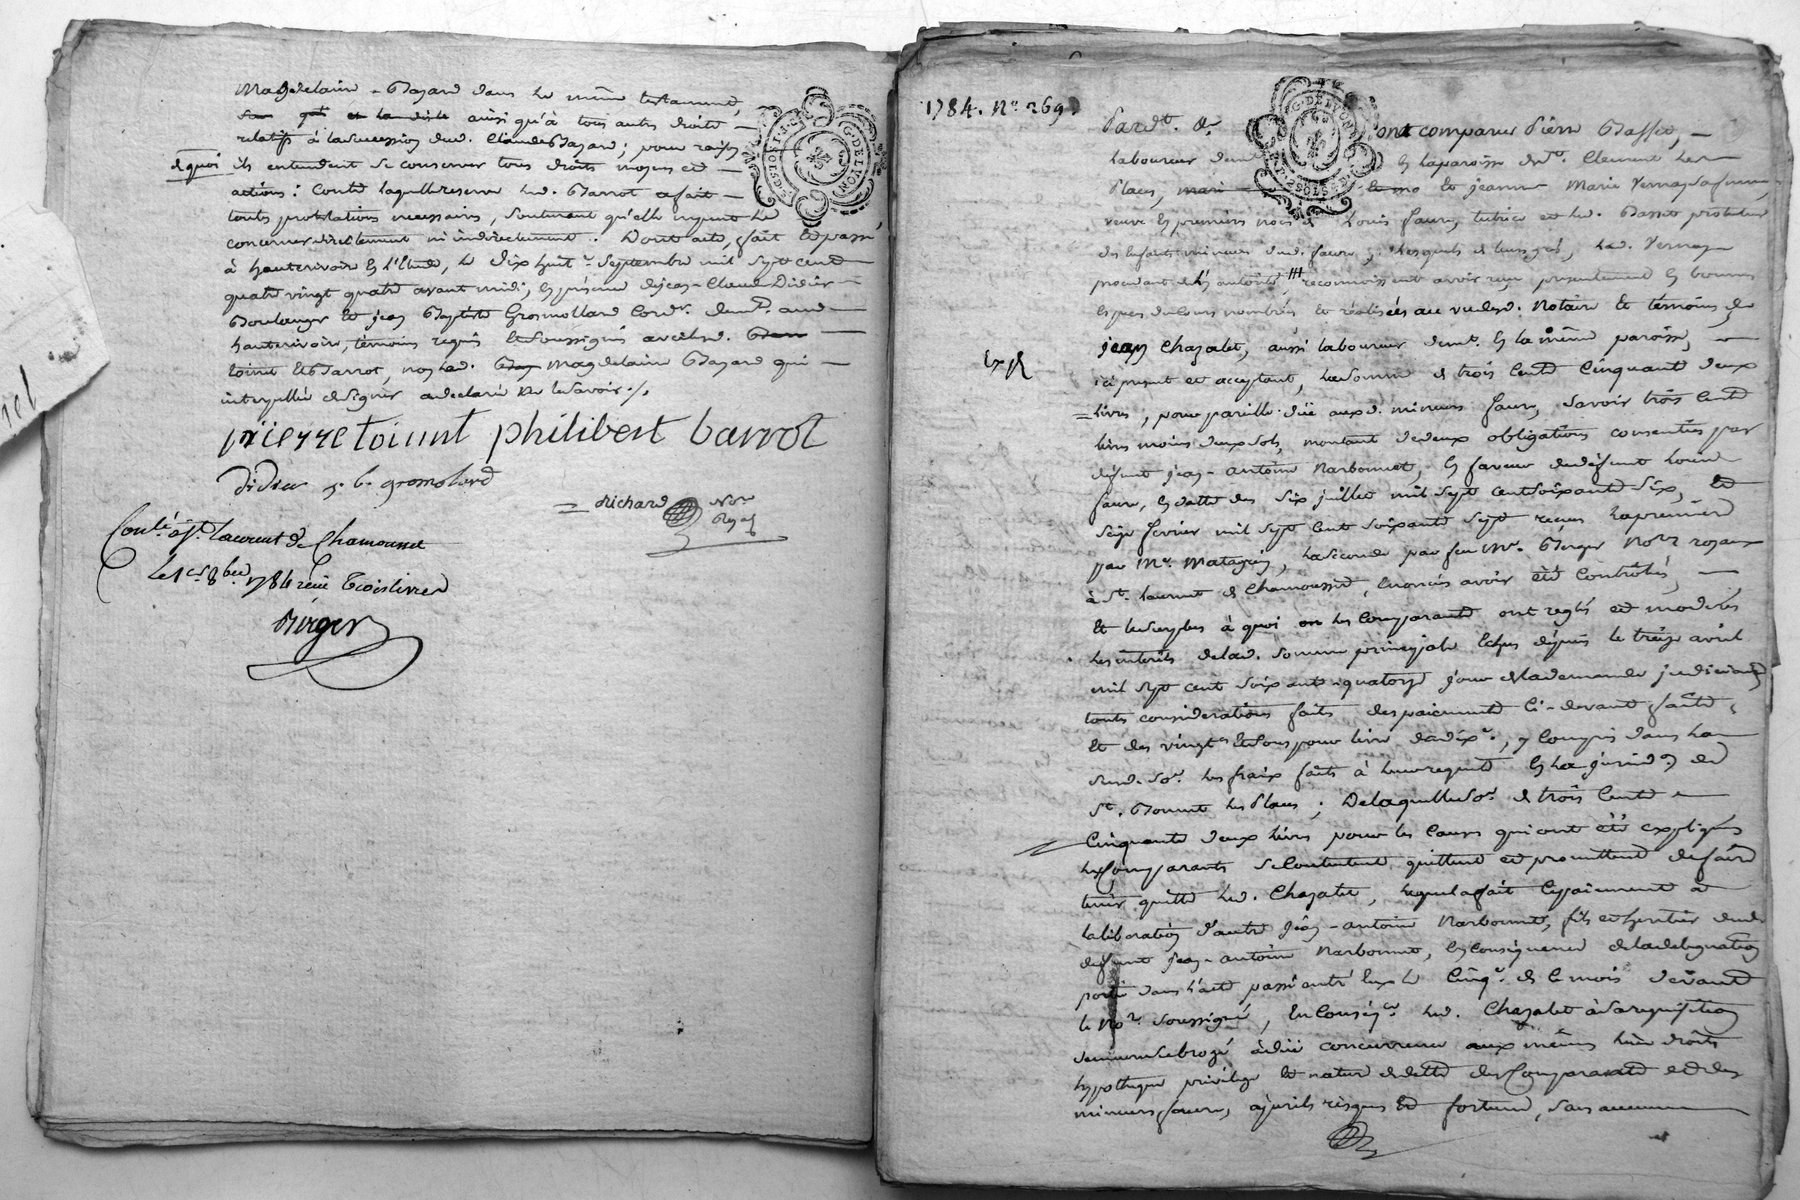 Magdelaine Bazard dans le même testament,
ainsi qu'à tous autres droits
relatifs à la succession dud. Claude Bazard; pour raison
de quoi ils entendent se conserver tous droits moyens et
actions: Contre laquelle reserve led. Barrot a fait
toutes protestations necessaires, soutenant qu'elle ne peut le
concerner directement ni indirectement. Dont acte, fait et passé
à hauterivoire en l'Etude, le dix huit.e Septembre mil sept cent
quatre vingt quatre avant midi, en présence de jean-Claude Didier
Boulanger et jean Baptiste Gromollard Cord.r dem.t aud.
hauterivoire, témoins requis et soussignés avec lesd.
toinnt et Barrot, non lad. Magdelaine Bazard qui
interpellée de signer a declaré ne le savoir ./.
pierre toinnt philibert barrot
didier j. b. gromolard
Richard Not.re
Royal
Con.lé à St. Laurent de Chamousset
Le 1er 8bre 1784 reçu trois livres
Berger
1784. N.o 269
Pard.t &.a ont comparu Pierre Basset,
laboureur dem.t en la paroisse de St. Clement les
Places, et jeanne Marie Vernay sa femme,
veuve en premiers noces de Louis faure, tutrice et led. Basset protuteur
des Enfants mineurs dud. faure; lesquels de leurs gré, lad. Vernay
procedant de lui autorisée reconnoissent avoir reçu presentement en bonnes
Especes de Cours nombrées et réalisées au vu desd. Notaire et témoins, de
jean Chazalet, aussi laboureur dem.t en la même paroisse,
Ex R
ici present et acceptant, la somme de trois Cents Cinquante deux
livres, pour pareille düe auxd. mineurs faure, savoir trois Cents
livres moins deux sols, montant de deux obligations consenties par
défunt jean-antoine Narbonnet, en faveur dudéfunt Louis
faure, en datte des six juillet mil sept cent soixante six, et
seize fevrier mil sept cent soixante sept reçues la premiere
par M.e Matagrin, la seconde par feu M.e Berger Not.res royaux
à St. Laurent de Chamousset, enoncés avoir été Contrôlés,
Et le surplus à quoi les Comparants ont reglés et moderés
les interêts de lad. somme principale Echus depuis le treize avril
mil sept cent soixante quatorze jour de la demande judiciaire
toutes considerations faites des paiements Ci-devant faits,
Et des vingt.es et sous pour livre du dix.e, y Compris dans la
susd. so.e les fraix faits à leur requete en la jurid.on de
St. Bonnet les Places; De laquelle so.e de trois Cents
Cinquante deux livres pour les Causes qui ont été expliquées
les Comparants se Contentent, quittent et promettent de faire
tenir quitte led. Chazalet, lequel a fait le paiement à
la liberation d'autre jean-antoine Narbonnet, fils et heritier dud.
défunt jean-antoine Narbonnet, en Conséquence de la delegation
portée dans l'acte passé entr'eux le Cinq.e de Ce mois devant
le No.re soussigné, En Conséq.ce led. Chazalet à sa requisition
demeure subrogé à düe concurrence aux mêmes lieu droits
hypotheque privilege et nature de dette des Comparants et des
mineurs faure, à perils risques et fortune, sans aucune